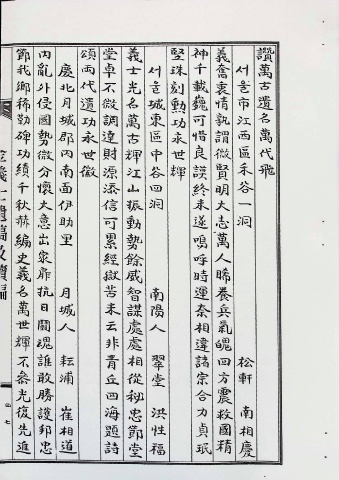 讚萬古遺名萬代飛
서울市江西區禾谷一洞 松軒 南相慶
義奮衷情孰謂微賢明大志萬人睎養兵氣魄四方震救國精
神千載巍可惜良謨終未遂嗚呼時運奈相違諸宗合力貞珉
竪珠刻勳功永世輝
서울城東區中谷四洞 南陽人 翠堂 洪性福
義士光名萬古輝江山振動勢餘威智謀處處相從秘忠節堂
堂卓不微調達財源添信可累經獄苦未云非靑丘四海題詩
頌兩代遺功永世徽
慶北月城郡內南面伊助里 月城人 耘浦 崔相道
內亂外侵國勢微分懷大意出家扉抗日鬪魂誰敢勝護邦忠
節我鄕稀勒碑功績千秋赫編史義名萬世輝不忝光復先進
義士遺稿及續編
四七